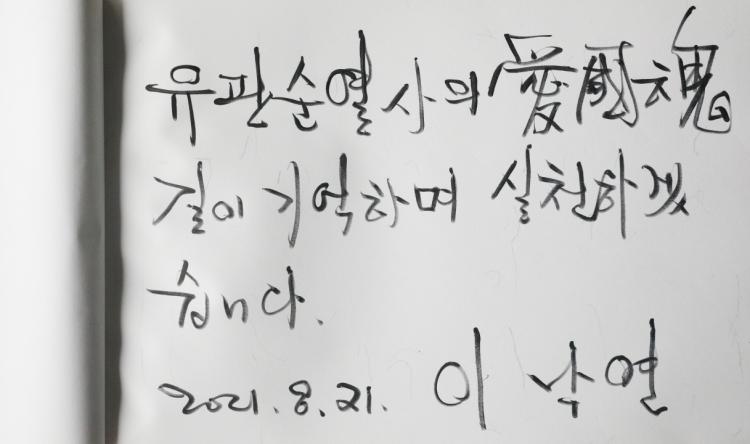 유관순열사의 愛國魂
길이 기억하며 실천하겠
습니다.
2021.8.21. 이 낙연